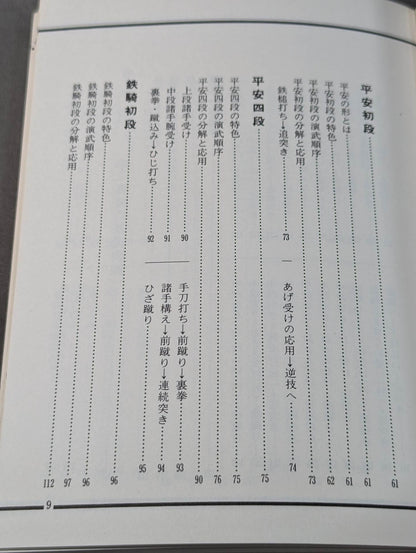 平安初段……61
平安の形とは……61
平安初段の特色……61
平安初段の演武順序……62
平安初段の分解と応用……73
鉄槌打ち→追突き……73
あげ受けの応用→逆技へ……74
平安四段……75
平安四段の特色……75
平安四段の演武順序……76
平安四段の分解と応用……90
上段諸手受け……90
手刀打ち→前蹴り→裏拳……93
中段諸手腕受け……91
諸手構え→前蹴り→連続突き……94
裏拳・蹴込み→ひじ打ち……92
ひざ蹴り……95
鉄騎初段……96
鉄騎初段の特色……96
鉄騎初段の演武順序……97
鉄騎初段の分解と応用……112
9